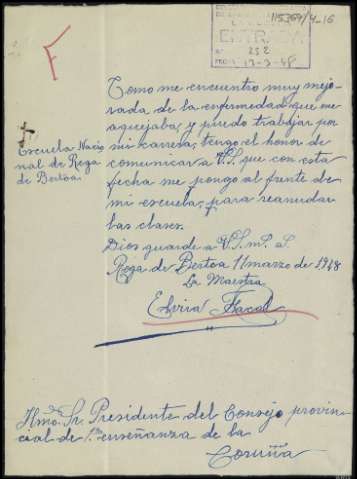 115367/4-16
ENTRADA
Nº 252
17-3-48
F
Como me encuentro muy mejo-
rada de la enfermedad que me
aquejaba, y puedo trabajar por
mi carrera, tengo el honor de
comunicar a V.S. que con esta
fecha me pongo al frente de
mi escuela, para reanudar
las clases.
Escuela Nacio
nal de Roga
de Bertoa
Dios guarde a V.S. m. a.
Roga de Bertoa 11 marzo de 1948
La Maestra
Elvira
Iltmo. Sr. Presidente del Consejo provin-
cial de 1ª enseñanza de la
Coruña